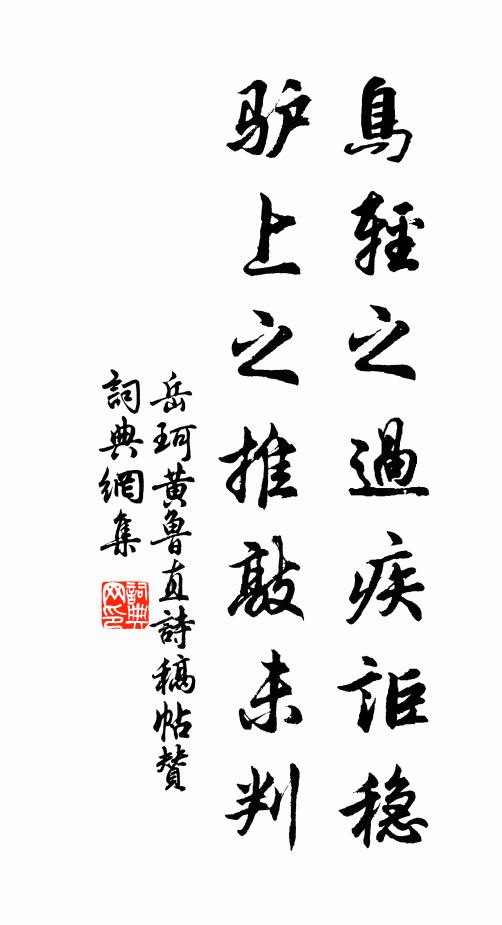 鳥輕之過疾詎穏
驴上之推敲未判
岳珂黄魯直詩稿帖賛
詞典網集
詞典网印